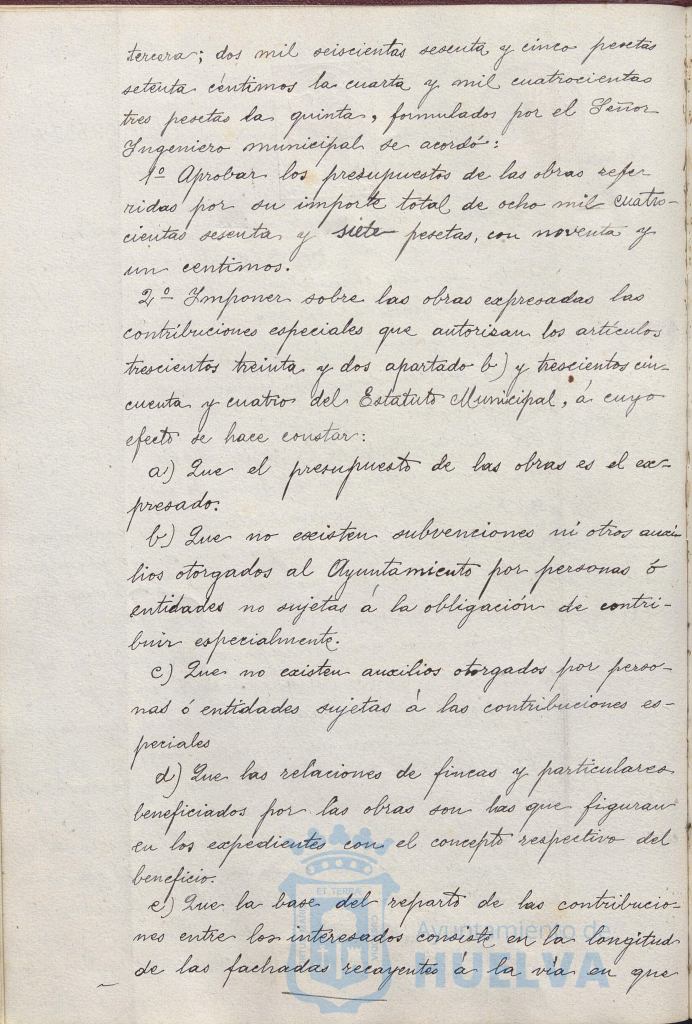 tercera; dos mil seiscientas sesenta y cinco pesetas
setenta céntimos la cuarta y mil cuatrocientas
tres pesetas la quinta, formulados por el Señor
Ingeniero municipal se acordó:
1º Aprobar los presupuestos de las obras refe-
ridas por su importe total de ocho mil cuatro-
cientas sesenta y siete pesetas, con noventa y
un centimos.
2º Imponer sobre las obras expresadas las
contribuciones especiales que autorizan los artículos
trescientos treinta y dos apartado b) y trescientos cin-
cuenta y cuatro del Estatuto Municipal, á cuyo
efecto se hace constar:
a) Que el presupuesto de las obras es el ex-
presado.
b) Que no existen subvenciones ni otros auxi-
lios otorgados al Ayuntamiento por personas ó
entidades no sujetas á la obligación de contri-
buir especialmente.
c) Que no existen auxilios otorgados por perso-
nas ó entidades sujetas á las contribuciones es-
peciales
d) Que las relaciones de fincas y particulares
beneficiados por las obras son las que figuran
en los expedientes con el concepto respectivo del
beneficio.
e) Que la base del reparto de las contribucio-
nes entre los interesados consiste en la longitud
de las fachadas recayentes á la vía en que
ET TERRA
Ayuntamiento de
HUELVA